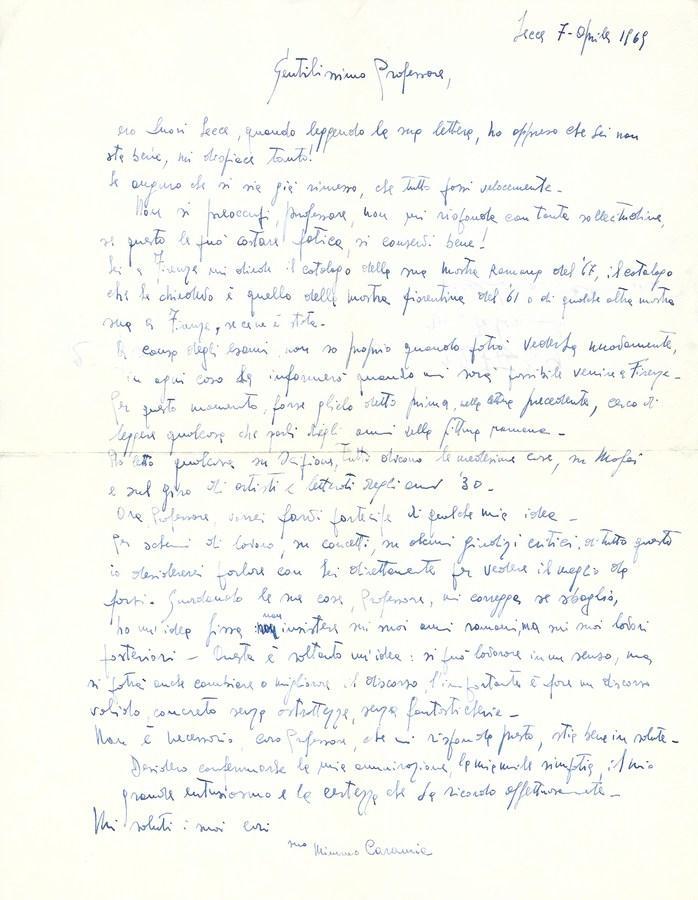 Lecce 7-Aprile 1969
Gentilissimo Professore,
ero fuori Lecce, quando leggendo la sua lettera, ho appreso che Lei non
sta bene, mi dispiace tanto!
Le auguro che si sia già rimesso, che tutto passi velocemente -
Non si preoccupi, Professore, non mi risponda con tanta sollecitudine,
se questo le può costare fatica, si conservi bene!
Lei a Firenze mi diede il catalogo della sua mostra Romana del '67, il catalogo
che Le chiedevo è quello della mostra fiorentina del '61 o di qualche altra mostra
sua a Firenze, se ce n'è stata -
A causa degli esami, non so proprio quando potrò vederLa nuovamente,
in ogni caso La informerò quando mi sarà possibile venire a Firenze -
Per questo momento, forse gliel'ho detto prima, nella precedente, cerco di
leggere qualcosa che parli degli anni della pittura romana -
Ho letto qualcosa su Scipione, tutti dicono le medesime cose, su Mafai
e sul giro di artisti e letterati degli anni '30 -
Ora Professore, vorrei farLa partecipe di qualche mia idea -
Per schemi di lavoro, su concetti, su alcuni giudizi critici, di tutto questo
io desidererei parlare con Lei direttamente per vedere il meglio da
farsi - Guardando le sue cose, Professore, mi corregga se sbaglio,
ho un'idea fissa: non insistere sui suoi anni romani, ma sui suoi lavori
posteriori - Questa è soltanto un'idea: si può lavorare in un senso, ma
si potrà anche cambiare o migliorare il discorso, l'importante è fare un discorso
valido, concreto senza astrattezze, senza fantasticherie -
Non è necessario, caro Professore, che mi risponda presto, stia bene in salute -
Desidero confermarLe la mia ammirazione, la mia simpatia, il mio
grande entusiasmo e la certezza che La ricordo affettuosamente -
Mi saluti i suoi cari
suo Mimmo Caramia